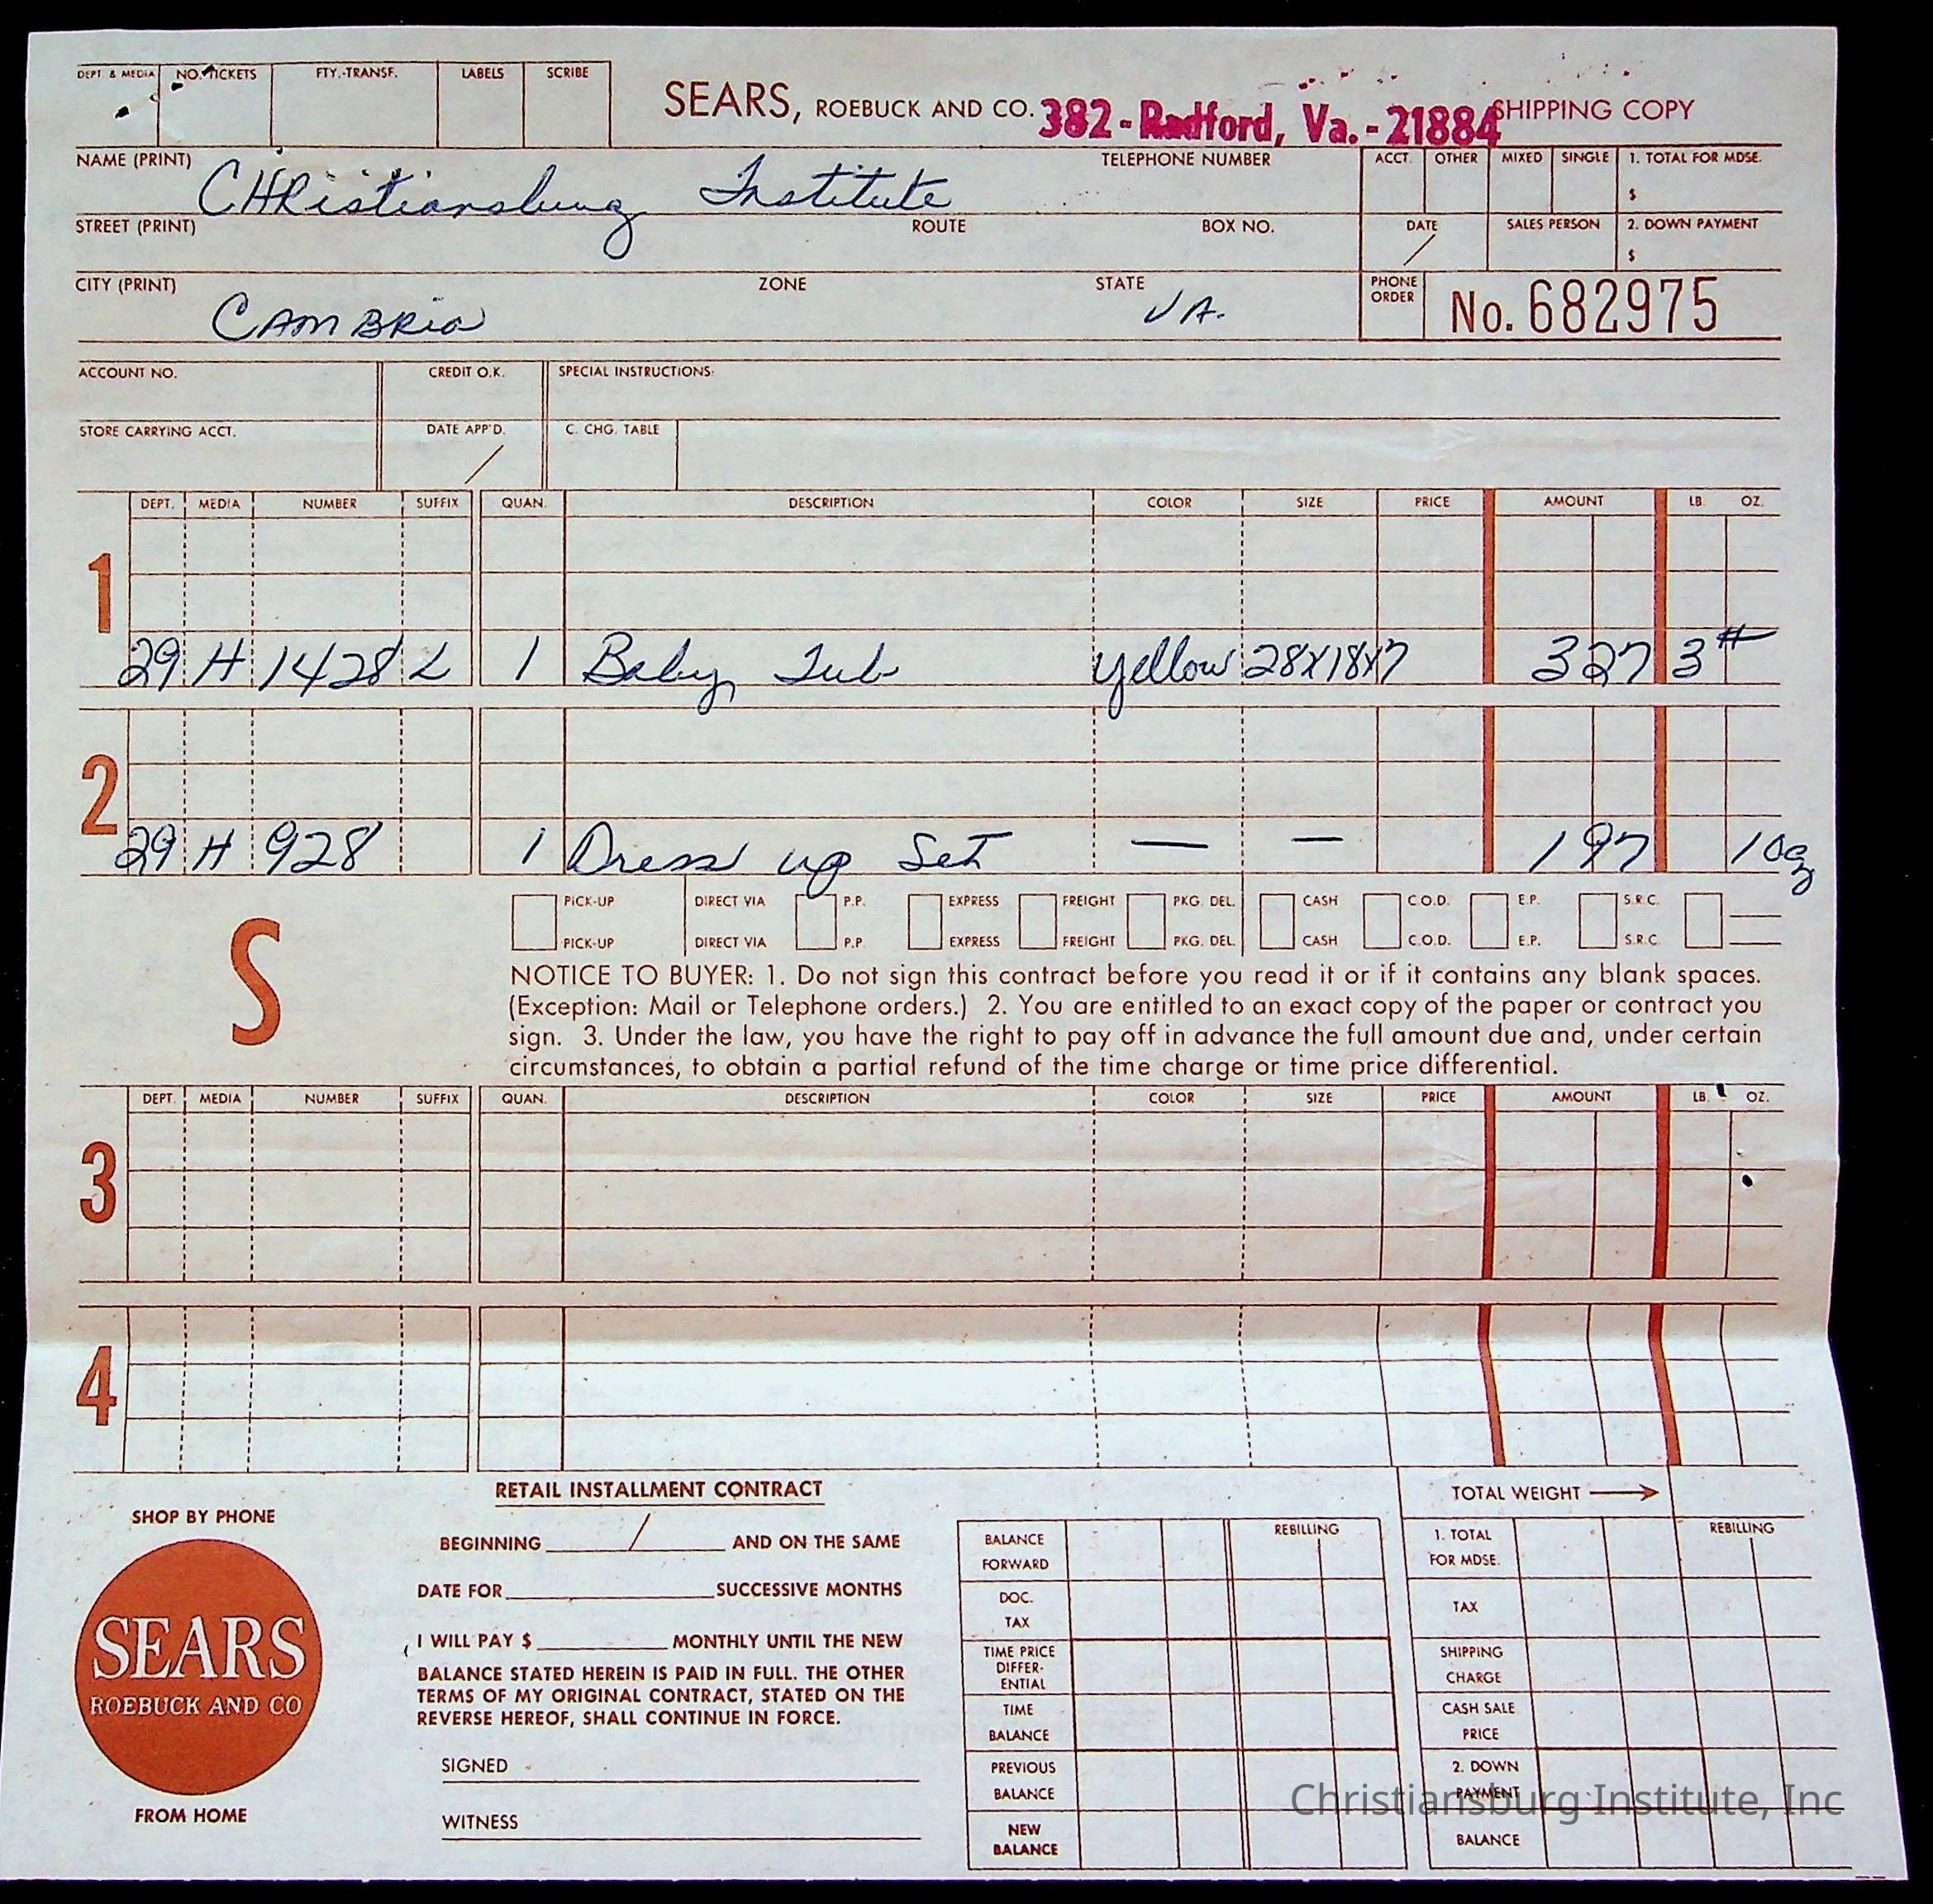 DEPT & MEDIA NO. TICKETS FTY.-TRANSF. LABELS SCRIBE
SEARS, ROEBUCK AND CO. 382 - Radford, Va. - 21884 SHIPPING COPY
NAME (PRINT) CHRistiansburg Institute TELEPHONE NUMBER ACCT. OTHER MIXED SINGLE 1. TOTAL FOR MDSE.
$
STREET (PRINT) ROUTE BOX NO. DATE SALES PERSON 2. DOWN PAYMENT
/ $
CITY (PRINT) CAMBRia ZONE STATE VA. PHONE ORDER No. 682975
ACCOUNT NO. CREDIT O.K. SPECIAL INSTRUCTIONS:
STORE CARRYING ACCT. DATE APP'D. / C. CHG. TABLE
DEPT. MEDIA NUMBER SUFFIX QUAN. DESCRIPTION COLOR SIZE PRICE AMOUNT LB. OZ.
1
29 H 1428 L 1 Baby Tub yellow 28X18X7 3 27 3#
2
29 H 928 1 Dress up Set — — 1 97 10oz
PICK-UP DIRECT VIA P.P. EXPRESS FREIGHT PKG. DEL. CASH C.O.D. E.P. S.R.C.
PICK-UP DIRECT VIA P.P. EXPRESS FREIGHT PKG. DEL. CASH C.O.D. E.P. S.R.C.
S
NOTICE TO BUYER: 1. Do not sign this contract before you read it or if it contains any blank spaces.
(Exception: Mail or Telephone orders.) 2. You are entitled to an exact copy of the paper or contract you
sign. 3. Under the law, you have the right to pay off in advance the full amount due and, under certain
circumstances, to obtain a partial refund of the time charge or time price differential.
DEPT. MEDIA NUMBER SUFFIX QUAN. DESCRIPTION COLOR SIZE PRICE AMOUNT LB. OZ.
3
4
SHOP BY PHONE
SEARS
ROEBUCK AND CO
FROM HOME
RETAIL INSTALLMENT CONTRACT
BEGINNING / AND ON THE SAME
DATE FOR SUCCESSIVE MONTHS
I WILL PAY $ MONTHLY UNTIL THE NEW
BALANCE STATED HEREIN IS PAID IN FULL. THE OTHER
TERMS OF MY ORIGINAL CONTRACT, STATED ON THE
REVERSE HEREOF, SHALL CONTINUE IN FORCE.
SIGNED
WITNESS
BALANCE FORWARD REBILLING
DOC. TAX
TIME PRICE DIFFER-
ENTIAL
TIME BALANCE
PREVIOUS BALANCE
NEW BALANCE
TOTAL WEIGHT
1. TOTAL FOR MDSE. REBILLING
TAX
SHIPPING CHARGE
CASH SALE PRICE
2. DOWN PAYMENT
BALANCE
Christiansburg Institute, Inc